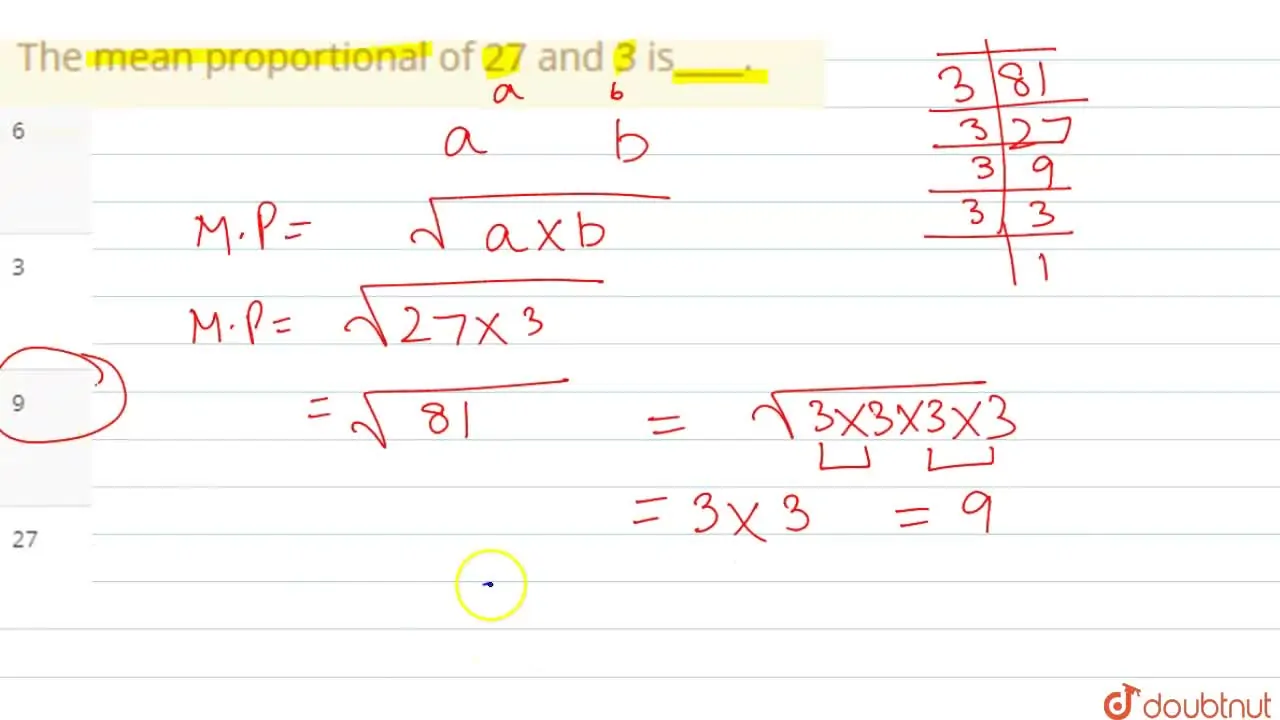 The mean proportional of 27 and 3 is____.
a b
a b
6
M.P= √a×b
3
M.P= √27×3
9
= √81 = √3×3×3×3
= 3×3 = 9
27
3 81
3 27
3 9
3 3
1
doubtnut